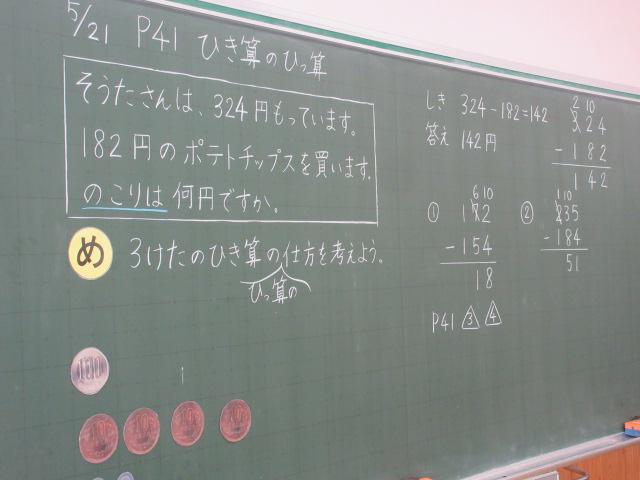 5/21 P41 ひき算のひっ算
そうたさんは、324円もっています。
182円のポテトチップスを買います。
のこりは何円ですか。
め 3けたのひき算の仕方を考えよう。
ひっ算の
100
10 10 10 10
しき 324-182=142
答え 142円
2 10
324
-182
142
① 6 10
172
-154
18
② 1 10
235
-184
51
P41 3 4